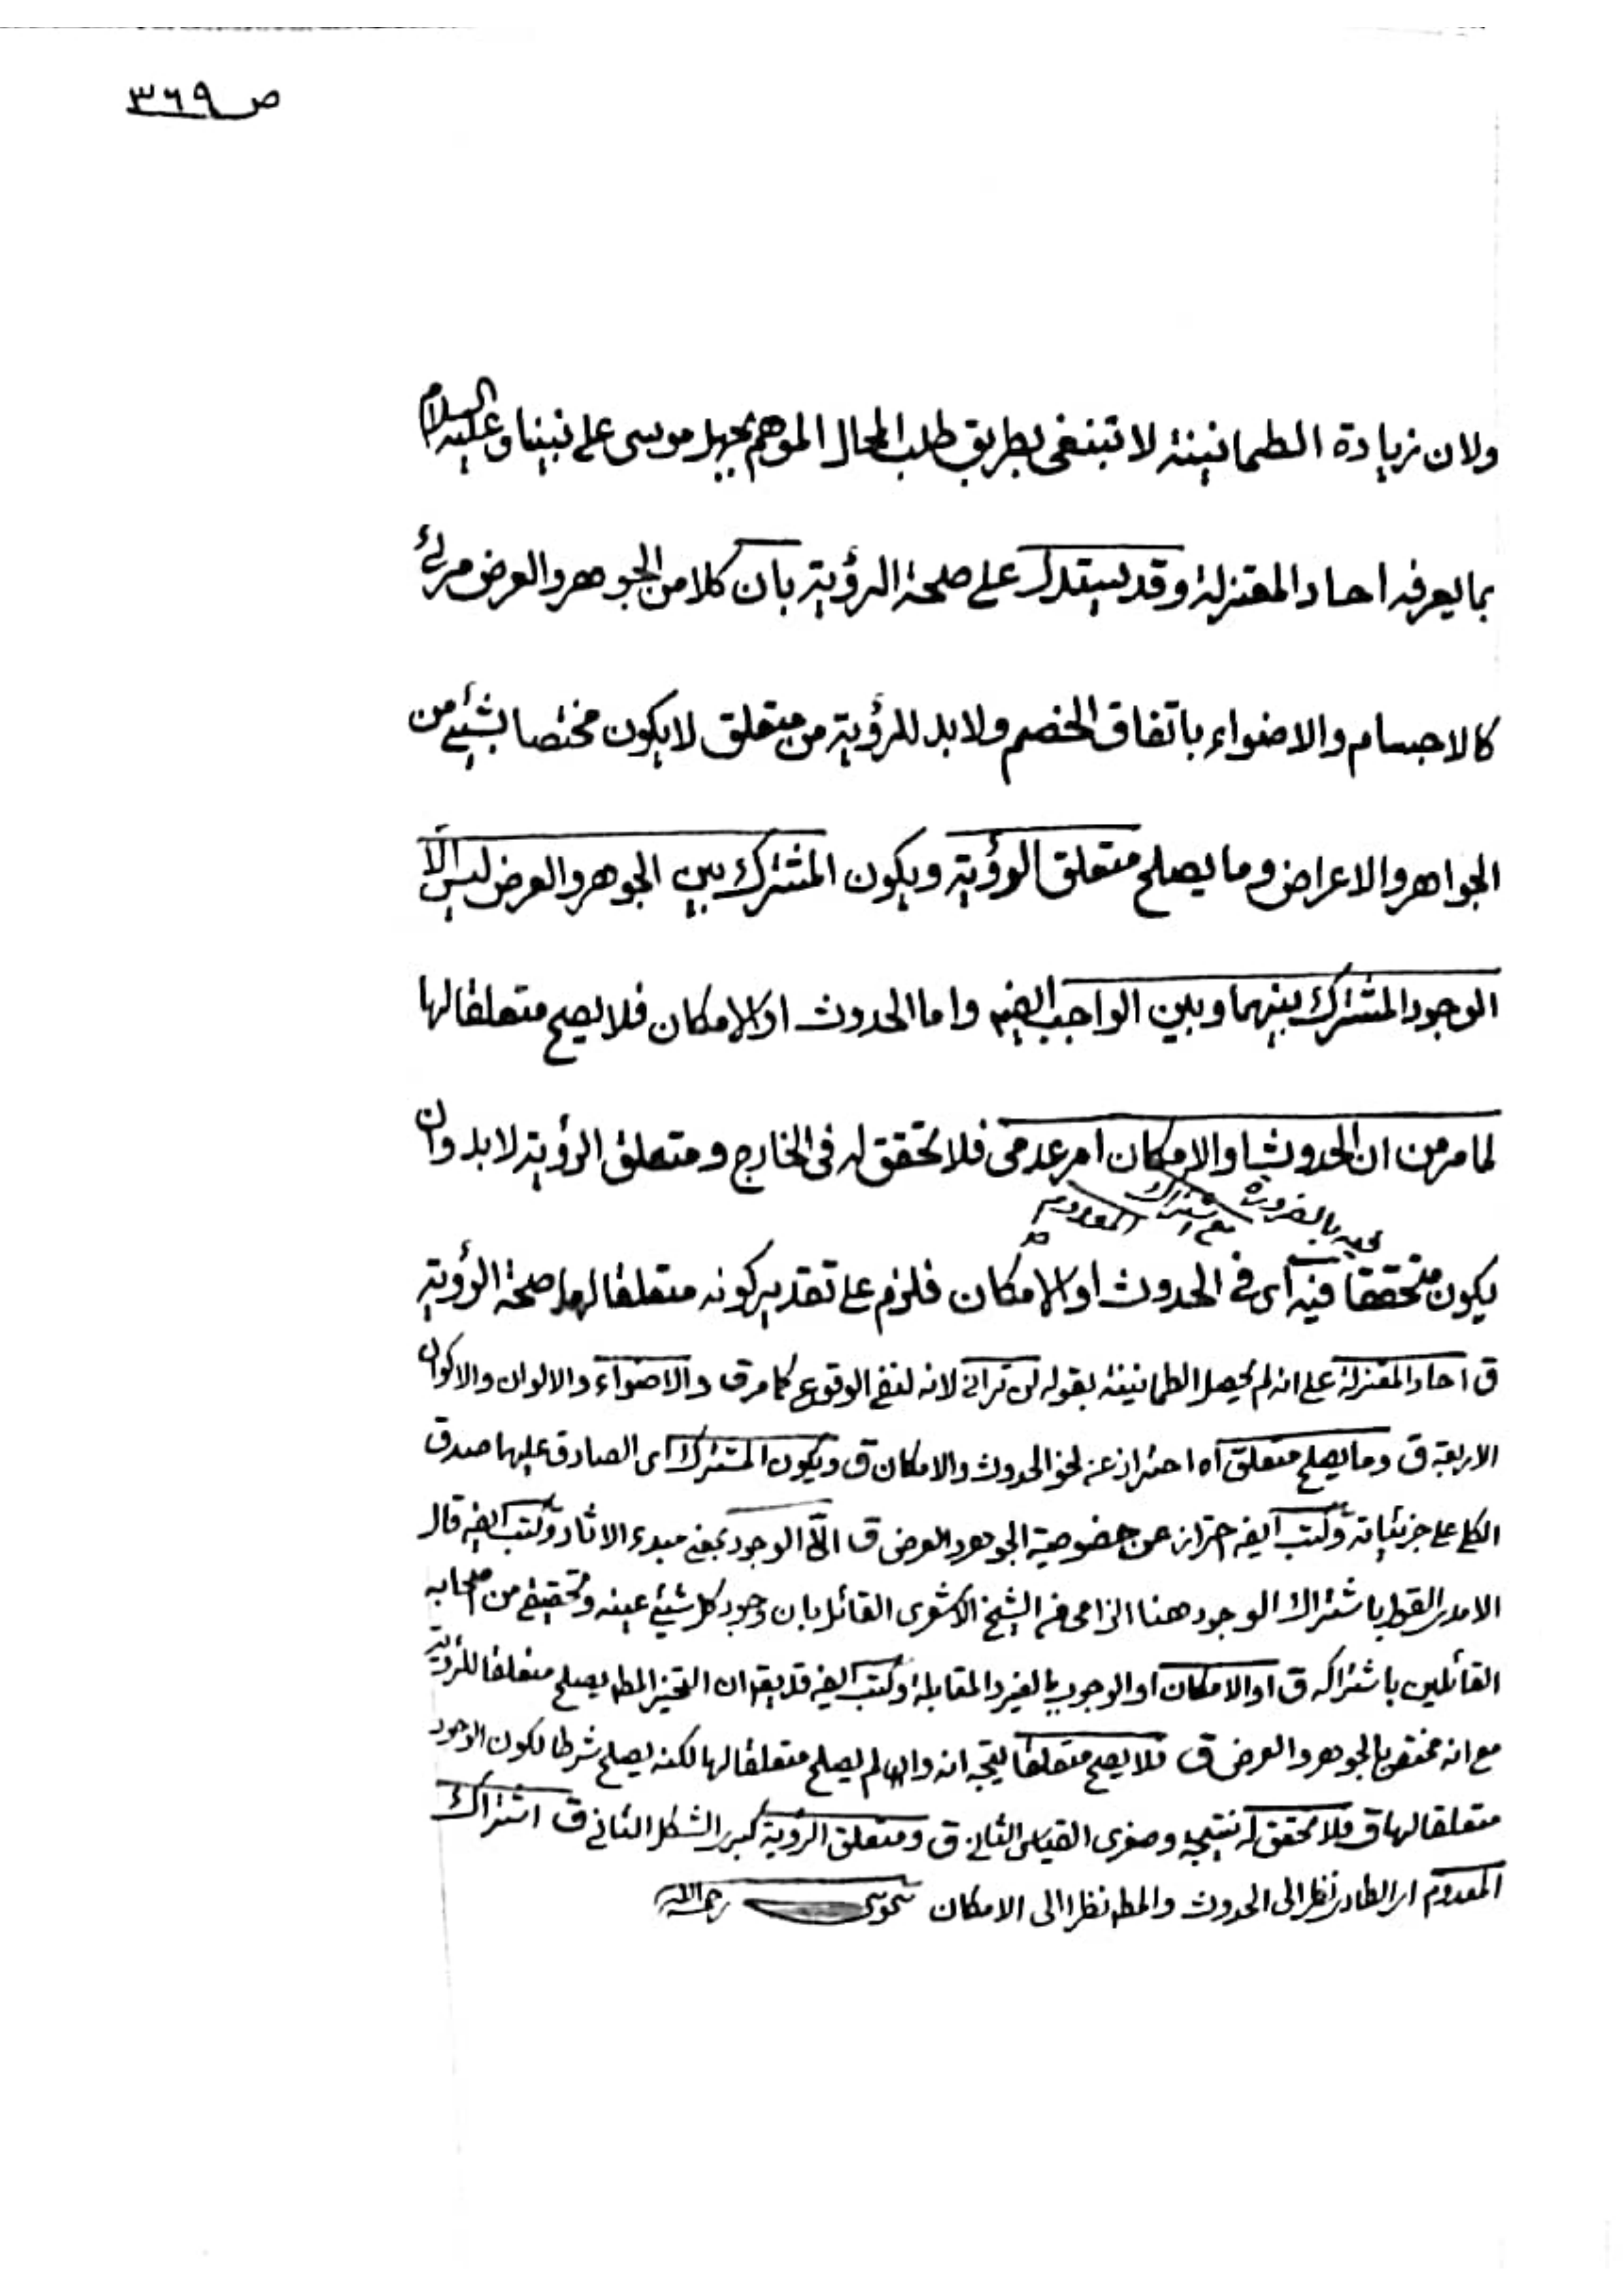 ص ٣٦٩
ولان زيادة الطمانينة لا تبتغى بطريق طلب المحال الموهم بجهل موسى على نبينا وعليه السلام
بما يعرفه احاد المعتزلة وقد يستدل على صحة الرؤية بان كلا من الجوهر والعرض مرئ
كالاجسام والاضواء باتفاق الخصم ولا بد للرؤية من متعلق لا يكون مختصا بشيئ من
الجواهر والاعراض وما يصلح متعلق الرؤية ويكون المشترك بين الجوهر والعرض ليس الّا
الوجود المشترك بينهما وبين الواجب ايضه واما الحدوث او الامكان فلا يصح متعلقا لها
لما مر من ان الحدوث او الامكان امر عدمى فلا تحقق له فى الخارج ومتعلق الرؤية لا بد وان
بالضرورة مع اشتراك المعدوم
يكون متحققا فيه اى فى الحدوث او الامكان فلزم على تقدير كونه متعلقا لها صحة الرؤية
ق احاد المعتزلة على انه لم يحصل الطمانينة بقوله لن ترانى لانه لنفى الوقوع كما مر ق والاضواء والالوان والاكوان
الاربعة ق وما يصلح متعلق اه احتراز عن نحو الحدوث والامكان ق ويكون المشترك اى الصادق عليها صدق
الكلى على جزئياته وكتب ايضه احتراز عن خصوصية الجوهر والعرض ق الّا الوجود بمعنى مبدء الاثار وكتب ايضه قال
الامدى القول باشتراك الوجود هنا الزامى من الشيخ الاشعرى القائل بان وجود كل شيئ عينه وتحقيقى من اصحابه
القائلين باشتراكه ق او الامكان او الوجوب بالغير والمقابلة وكتب ايضه قد يقه ان التحيز المطه يصلح متعلقا للرؤية
مع انه مختص بالجوهر والعرض ق فلا يصح متعلقا يتجه انه وان لم يصلح متعلقا لها لكنه يصلح شرطا لكون الوجود
متعلقا لها ق فلا تحقق له نتيجة وصغرى القياس الثانى ق ومتعلق الرؤية كبرى الشكل الثانى ق اشتراك
المعدوم اى الطارى نظرا الى الحدوث والمطه نظرا الى الامكان رحمه الله